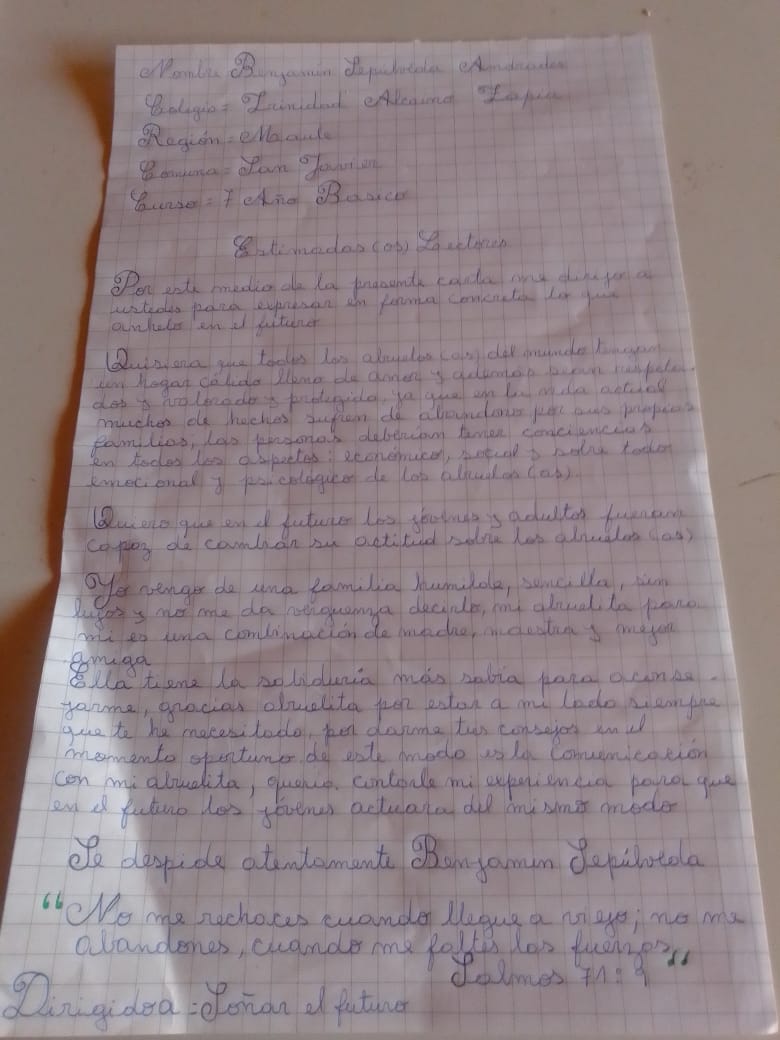 Nombre Benjamin Sepúlveda Andrades
Colegio = Trinidad Alcaino Tapia
Región = Maule
Comuna = San Javier
Curso = 7 Año Basico
Estimadas (os) Lectores
Por este medio de la presente carta me dirijo a
ustedes para expresar en forma concreta lo que
anhelo en el futuro
Quisiera que todos los abuelos (as) del mundo tengan
un hogar cálido lleno de amor y además sean respeta-
dos y valorado y protegido, ya que en la vida actual
muchos de hechos sufren de abandono por sus propias
familias, las personas deberían tener conciencias
en todos los aspectos: económico, social y sobre todo
emocional y psicologico de los abuelos (as).
Quiero que en el futuro los jóvenes y adultos fueran
capaz de cambiar su actitud sobre los abuelos (as)
Yo vengo de una familia humilde, sencilla, sin
lujos y no me da verguenza decirlo, mi abuelita para
mi es una combinación de madre, maestra y mejor
amiga
Ella tiene la sabiduría más sabia para aconse-
jarme, gracias abuelita por estar a mi lado siempre
que te he necesitado, por darme tus consejos en el
momento oportuno de este modo es la comunicación
con mi abuelita, queria contarle mi experiencia para que
en el futuro los jóvenes actuara del mismo modo
Se despide atentamente Benjamin Sepúlveda
"No me rechaces cuando llegue a viejo; no me
abandones, cuando me faltes las fuerzas"
Salmos 71:9
Dirigidoa = Soñar el futuro